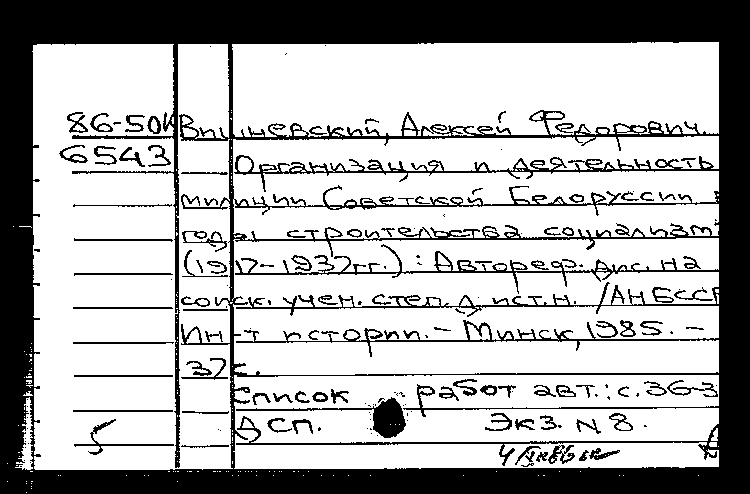 86-50к Вишневский, Алексей Федорович.
6543 Организация и деятельность
милиции Советской Белоруссии в
годы строительства социализм
(1917-1937гг.) : Автореф. дис. на
соиск. учен. степ. д. ист. н. / АН БССР
Ин-т истории. - Минск, 1985. -
37с.
Список работ авт.: с. 36-3
5 ДСП. Экз. N 8.